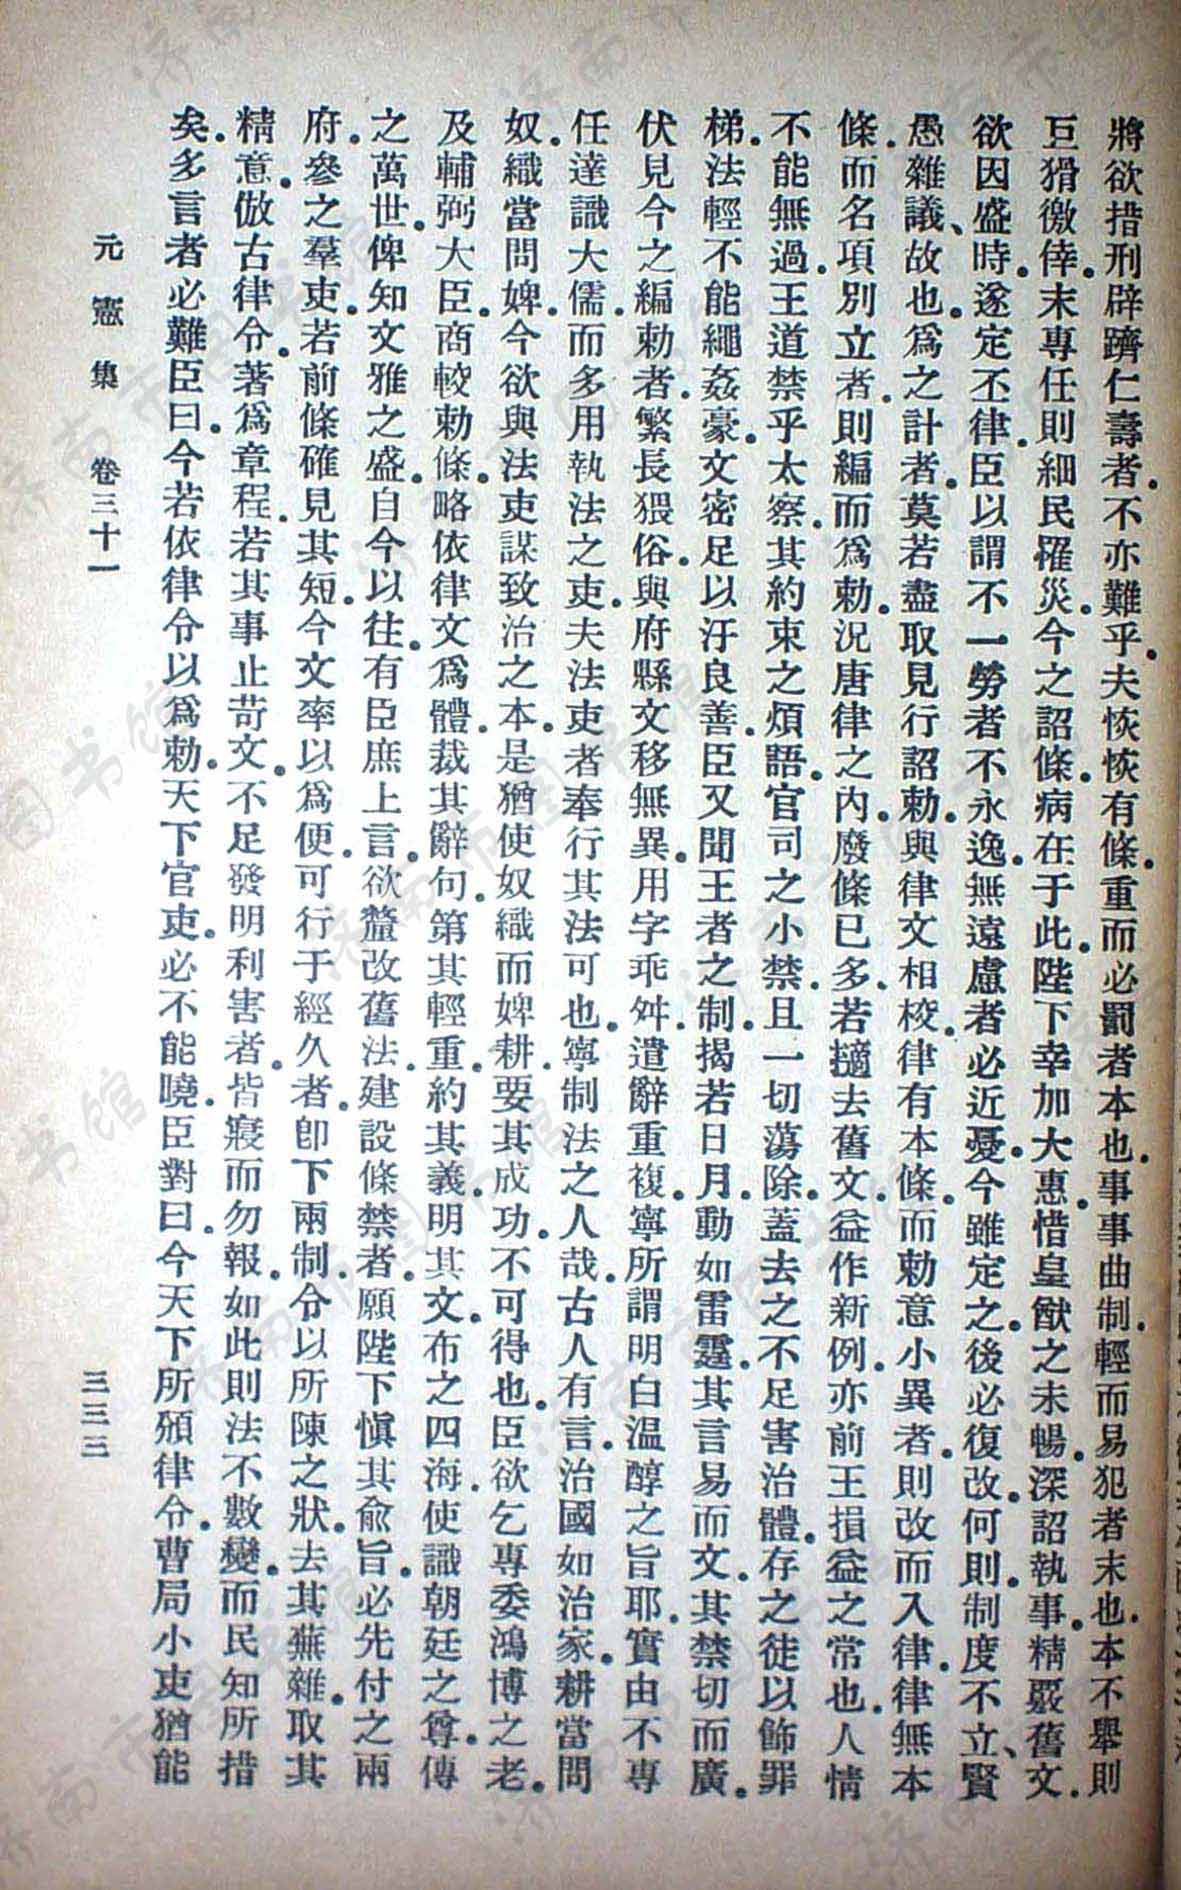 將欲措刑辟躋仁壽者.不亦難乎.夫恢恢有條.重而必罰者本也.事事曲制.輕而易犯者末也.本不舉則
巨猾徼倖.末專任則細民罹災.今之詔條.病在于此.陛下幸加大惠.惜皇猷之未暢.深詔執事.精覈舊文.
欲因盛時.遂定丕律.臣以謂不一勞者不永逸.無遠慮者必近憂.今雖定之.後必復改.何則.制度不立、賢
愚雜議、故也.爲之計者.莫若盡取見行詔勅.與律文相校.律有本條.而勅意小異者.則改而入律.律無本
條.而名項別立者.則編而爲勅.況唐律之內.廢條已多.若擿去舊文.益作新例.亦前王損益之常也.人情
不能無過.王道禁乎太察.其約束之煩語.官司之小禁.且一切蕩除.蓋去之不足害治體.存之徒以飾罪
梯.法輕不能繩姦豪.文密足以汙良善.臣又聞王者之制.揭若日月.動如雷霆.其言易而文.其禁切而廣.
伏見今之編勅者.繁長猥俗.與府縣文移無異.用字乖舛.遣辭重複.寧所謂明白温醇之旨耶.實由不專
任達識大儒.而多用執法之吏.夫法吏者奉行其法可也.寧制法之人哉.古人有言.治國如治家.耕當問
奴.織當問婢.今欲與法吏謀致治之本.是猶使奴織而婢耕.要其成功.不可得也.臣欲乞專委鴻博之老.
及輔弼大臣.商較勅條.略依律文爲體.裁其辭句.第其輕重.約其義.明其文.布之四海.使識朝廷之尊.傳
之萬世.俾知文雅之盛.自今以往.有臣庶上言.欲釐改舊法.建設條禁者.願陛下愼其兪旨.必先付之兩
府.參之羣吏.若前條確見其短.今文率以爲便.可行于經久者.卽下兩制.令以所陳之狀.去其蕪雜.取其
精意.倣古律令.著爲章程.若其事止苛文.不足發明利害者.皆寢而勿報.如此則法不數變.而民知所措
矣.多言者必難臣曰.今若依律令以爲勅.天下官吏.必不能曉.臣對曰.今天下所頒律令.曹局小吏猶能
元憲集　卷三十一　三三三